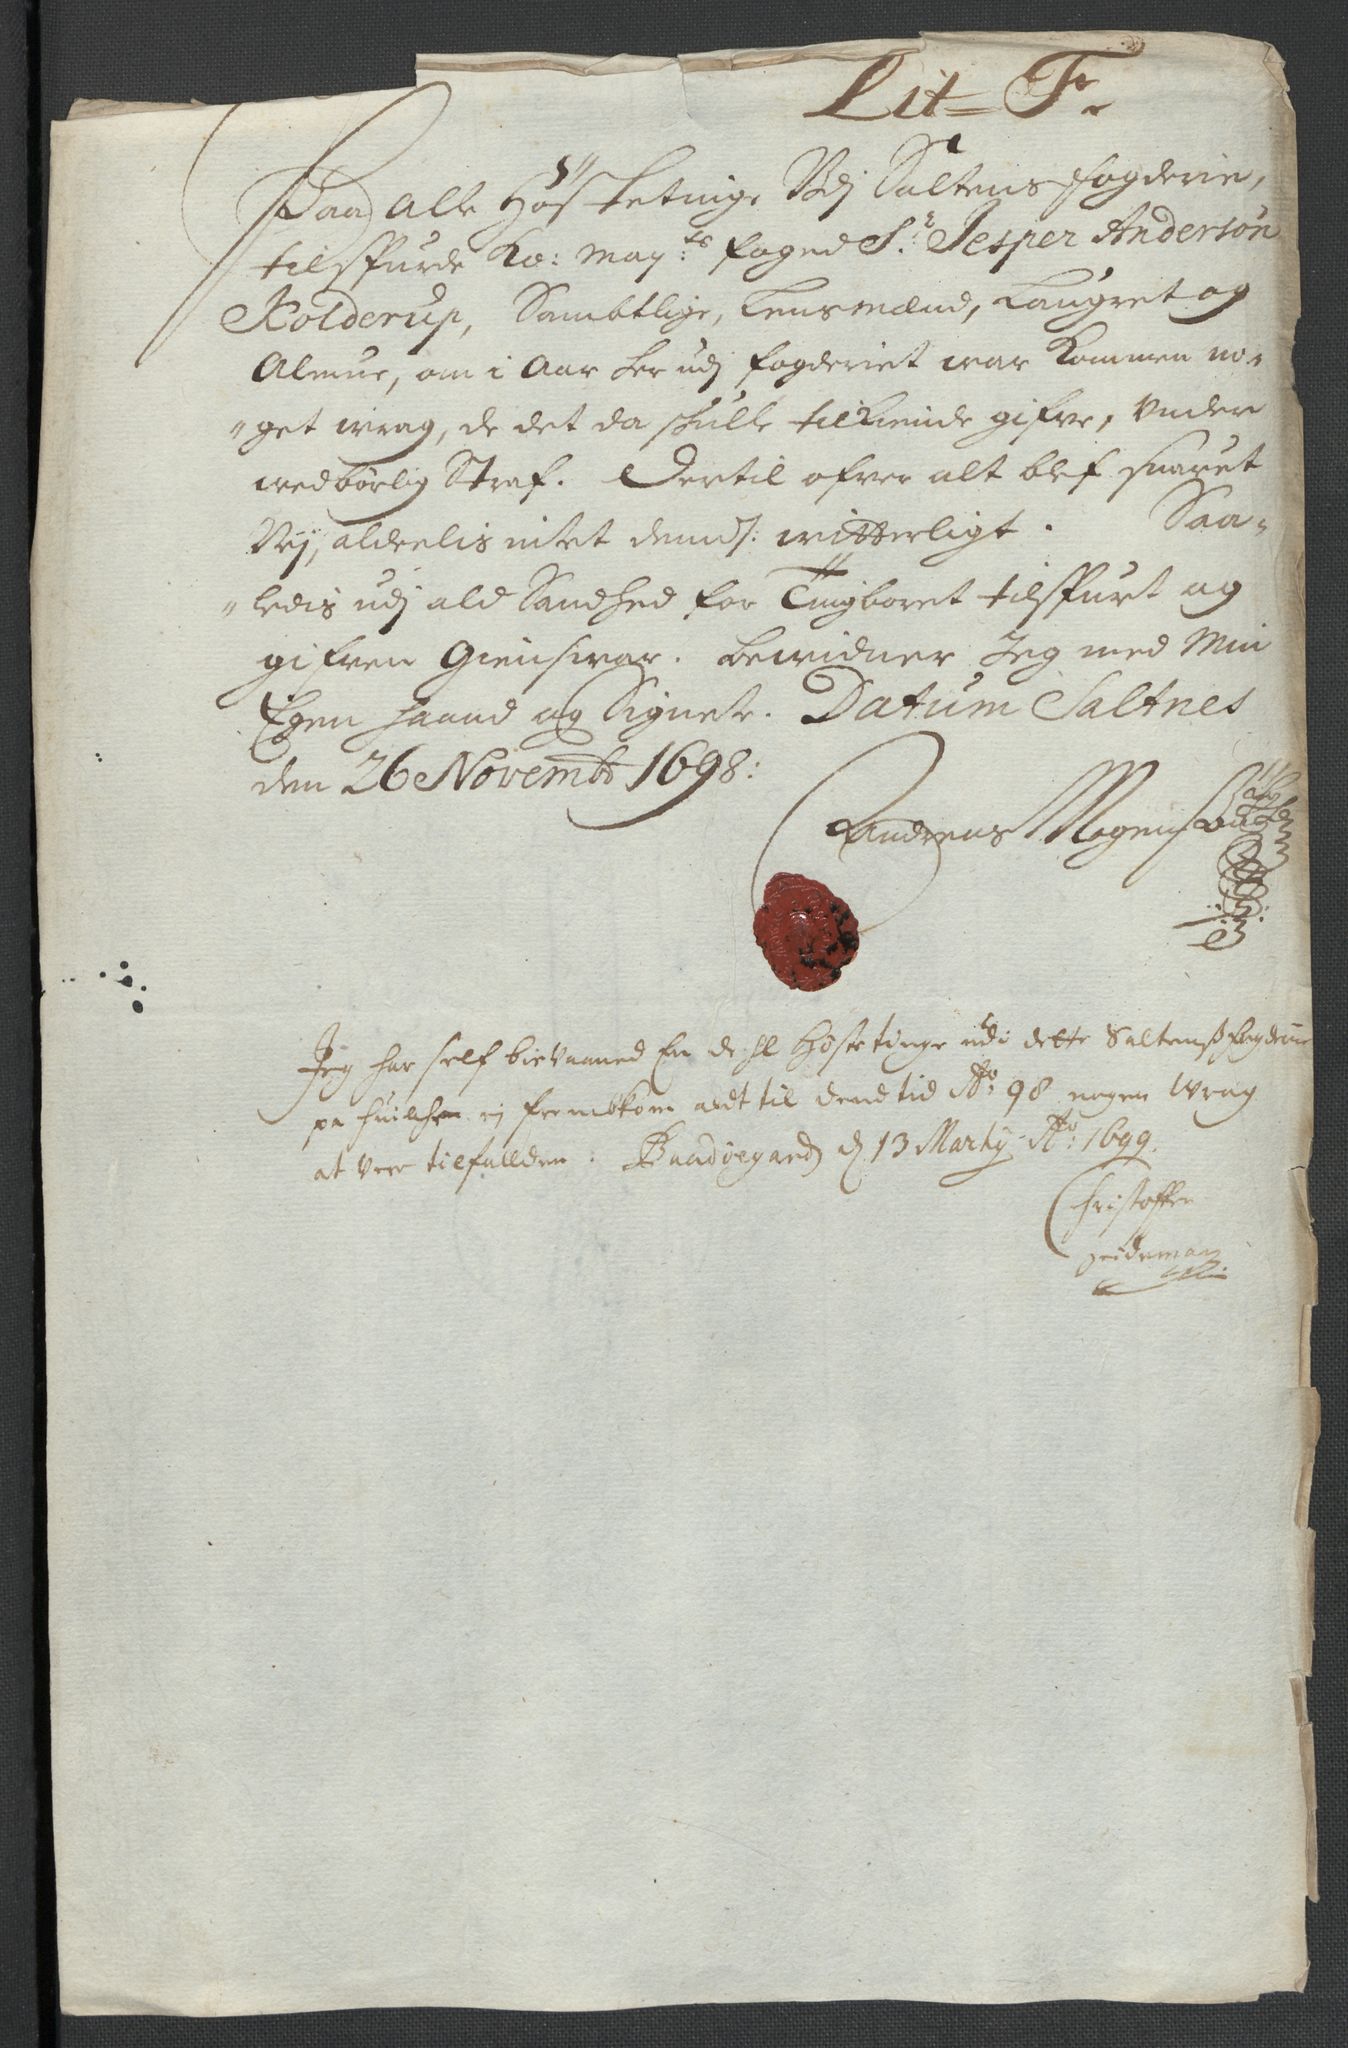 Lit= F.
Paa Alle Høsttetinge Udj Saltens fogderie,
tilspurde Ko: May:ts foged Sr. Jesper Andersøn
Kolderup, Sambtlige, Lensmænd, Laugret og
Almue, om i Aar her udj fogderiet war kommen no-
"get wrag, de det da skulle tilkiende gifve, Under
wedbørlig Straf. Dertil ofver alt blef suaret
Nej, aldeelis intet dennd: witterligt. Saa-
"ledis udj ald Sandhed for Tingboret tilspurt og
gifven Giensvar. bewidner Jeg med Min
Egen haand og Signete. Datum Saltnes
den 26 Novembr 1698:
Andreas Mogens
Jeg har self biewaaned En deehl Høstetinge udi dette Saltens fogderie
pa huilchen ej frembkom aldt til dend tid Ao: 98 nogen Wrag
at Vere tilfallden. Baadøegaard d 13 Marty Ao: 1699.
Christoffer
Heideman